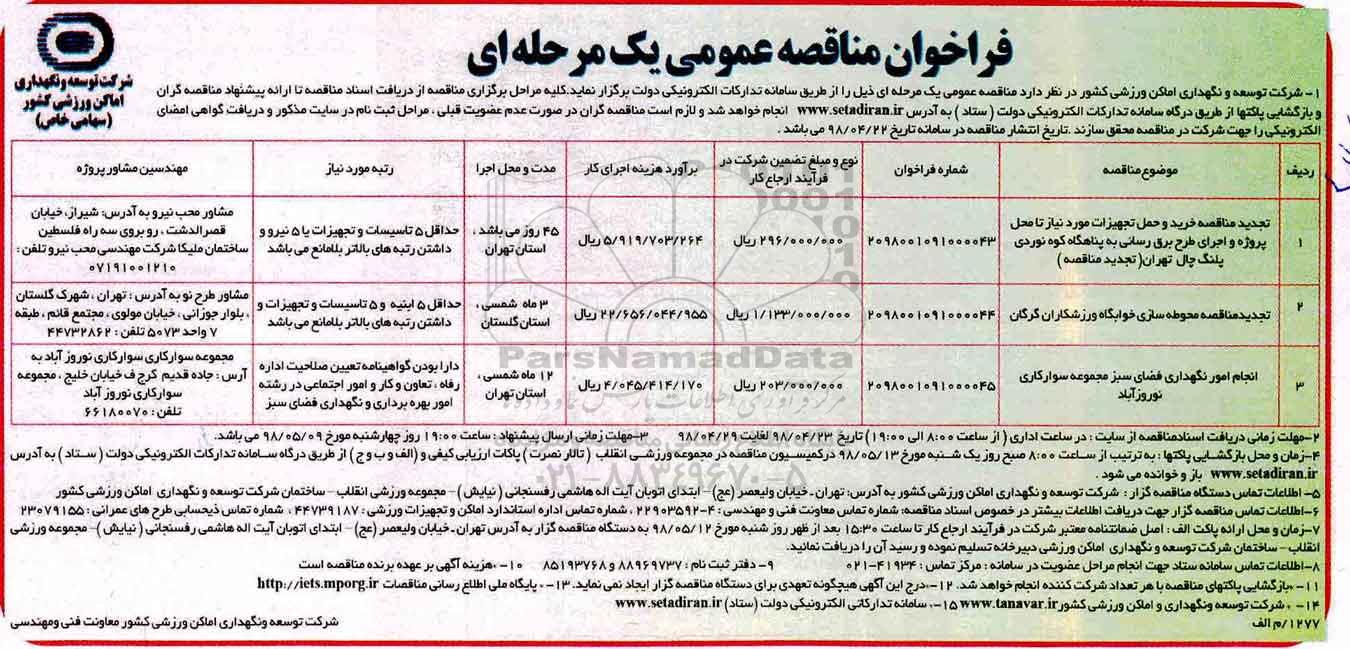 فراخوان مناقصه عمومی یک مرحله ای
شرکت توسعه و نگهداری
اماکن ورزشی کشور
(سهامی خاص)
۱- شرکت توسعه و نگهداری اماکن ورزشی کشور در نظر دارد مناقصه عمومی یک مرحله ای ذیل را از طریق سامانه تدارکات الکترونیکی دولت برگزار نماید.کلیه مراحل برگزاری مناقصه از دریافت اسناد مناقصه تا ارائه پیشنهاد مناقصه گران
و بازگشایی پاکتها از طریق درگاه سامانه تدارکات الکترونیکی دولت ( ستاد ) به آدرس www.setadiran.ir انجام خواهد شد و لازم است مناقصه گران در صورت عدم عضویت قبلی ، مراحل ثبت نام در سایت مذکور و دریافت گواهی امضای
الکترونیکی را جهت شرکت در مناقصه محقق سازند .تاریخ انتشار مناقصه در سامانه تاریخ ۹۸/۰۴/۲۲ می باشد .
ردیف
موضوع مناقصه
شماره فراخوان
نوع و مبلغ تضمین شرکت در
فرآیند ارجاع کار
برآورد هزینه اجرای کار
مدت و محل اجرا
رتبه مورد نیاز
مهندسین مشاور پروژه
۱
تجدید مناقصه خرید و حمل تجهیزات مورد نیاز تا محل
پروژه و اجرای طرح برق رسانی به پناهگاه کوه نوردی
پلنگ چال تهران( تجدید مناقصه )
۲۰۹۸۰۰۱۰۹۱۰۰۰۰۴۳
۲۹۶/۰۰۰/۰۰۰ ریال
۵/۹۱۹/۷۰۳/۲۶۴ ریال
۴۵ روز می باشد ،
استان تهران
حداقل ۵ تاسیسات و تجهیزات یا ۵ نیرو و
داشتن رتبه های بالاتر بلامانع می باشد
مشاور محب نیرو به آدرس: شیراز، خیابان
قصرالدشت ، رو بروی سه راه فلسطین
ساختمان ملیکا شرکت مهندسی محب نیرو تلفن :
۰۷۱۹۱۰۰۱۲۱۰
۲
تجدیدمناقصه محوطه سازی خوابگاه ورزشکاران گرگان
۲۰۹۸۰۰۱۰۹۱۰۰۰۰۴۴
۱/۱۳۳/۰۰۰/۰۰۰ ریال
۲۲/۶۵۶/۰۴۴/۹۵۵ ریال
۳ ماه شمسی ،
استان گلستان
حداقل ۵ ابنیه و ۵ تاسیسات و تجهیزات و
داشتن رتبه های بالاتر بلامانع می باشد
مشاور طرح نو به آدرس : تهران ، شهرک گلستان
، بلوار جوزانی ، خیابان مولوی ، مجتمع قائم ، طبقه
۷ واحد ۵۰۷۳ تلفن : ۴۴۷۳۲۸۶۲
۳
انجام امور نگهداری فضای سبز مجموعه سوارکاری
نوروزآباد
۲۰۹۸۰۰۱۰۹۱۰۰۰۰۴۵
۲۰۳/۰۰۰/۰۰۰ ریال
۴/۰۴۵/۴۱۴/۱۷۰ ریال
۱۲ ماه شمسی ،
استان تهران
دارا بودن گواهینامه تعیین صلاحیت اداره
رفاه ، تعاون و کار و امور اجتماعی در رشته
امور بهره برداری و نگهداری فضای سبز
مجموعه سوارکاری سوارکاری نوروز آباد به
آرس : جاده قدیم کرج ف خیابان خلیج ، مجموعه
سوارکاری نوروز آباد
تلفن : ۶۶۱۸۰۰۷۰
ParsNamadData
۰۲۱-۸۸۳۴۹۶۷۰-۵
۲-مهلت زمانی دریافت اسنادمناقصه از سایت : در ساعت اداری ( از ساعت ۸:۰۰ الی ۱۹:۰۰) تاریخ ۹۸/۰۴/۲۳ لغایت ۹۸/۰۴/۲۹ ۳-مهلت زمانی ارسال پیشنهاد : ساعت ۱۹:۰۰ روز چهارشنبه مورخ ۹۸/۰۵/۰۹ می باشد.
۴-زمان و محل بازگشایی پاکتها : به ترتیب از ساعت ۸:۰۰ صبح روز یک شنبه مورخ ۹۸/۰۵/۱۳ درکمیسیون مناقصه در مجموعه ورزشی انقلاب ( تالار نصرت ) پاکات ارزیابی کیفی و (الف و ب و ج ) از طریق درگاه سامانه تدارکات الکترونیکی دولت ( ستاد ) به آدرس
www.setadiran.ir باز و خوانده می شود .
۵- اطلاعات تماس دستگاه مناقصه گزار : شرکت توسعه و نگهداری اماکن ورزشی کشور به آدرس: تهران ـ خیابان ولیعصر (عج)- ابتدای اتوبان آیت اله هاشمی رفسنجانی ( نیایش ) - مجموعه ورزشی انقلاب - ساختمان شرکت توسعه و نگهداری اماکن ورزشی کشور
۶-اطلاعات تماس مناقصه گزار جهت دریافت اطلاعات بیشتر در خصوص اسناد مناقصه: شماره تماس معاونت فنی و مهندسی : ۴-۲۲۹۰۳۵۹۲ ، شماره تماس اداره استاندارد اماکن و تجهیزات ورزشی : ۴۴۷۳۹۱۸۷ ، شماره تماس ذیحسابی طرح های عمرانی : ۲۳۰۷۹۱۵۵
۷-زمان و محل ارائه پاکت الف : اصل ضمانتنامه معتبر شرکت در فرآیند ارجاع کار تا ساعت ۱۵:۳۰ بعد از ظهر روز شنبه مورخ ۹۸/۰۵/۱۲ به دستگاه مناقصه گزار به آدرس تهران ـ خیابان ولیعصر (عج)- ابتدای اتوبان آیت اله هاشمی رفسنجانی ( نیایش ) - مجموعه ورزشی
انقلاب - ساختمان شرکت توسعه و نگهداری اماکن ورزشی دبیرخانه تسلیم نموده و رسید آن را دریافت نمائید.
۸-اطلاعات تماس سامانه ستاد جهت انجام مراحل عضویت در سامانه : مرکز تماس : ۴۱۹۳۴-۰۲۱ ۹- دفتر ثبت نام : ۸۸۹۶۹۷۳۷ و ۸۵۱۹۳۷۶۸ ۱۰- هزینه آگهی بر عهده برنده مناقصه است
۱۱- بازگشایی پاکتهای مناقصه با هر تعداد شرکت کننده انجام خواهد شد. ۱۲- درج این آگهی هیچگونه تعهدی برای دستگاه مناقصه گزار ایجاد نمی نماید. ۱۳- پایگاه ملی اطلاع رسانی مناقصات http://iets.mporg.ir
۱۴- شرکت توسعه و نگهداری و اماکن ورزشی کشور www.tanavar.ir ۱۵- سامانه تدارکاتی الکترونیکی دولت (ستاد) www.setadiran.ir
۱۲۷۷/م الف
شرکت توسعه ونگهداری اماکن ورزشی کشور معاونت فنی ومهندسی